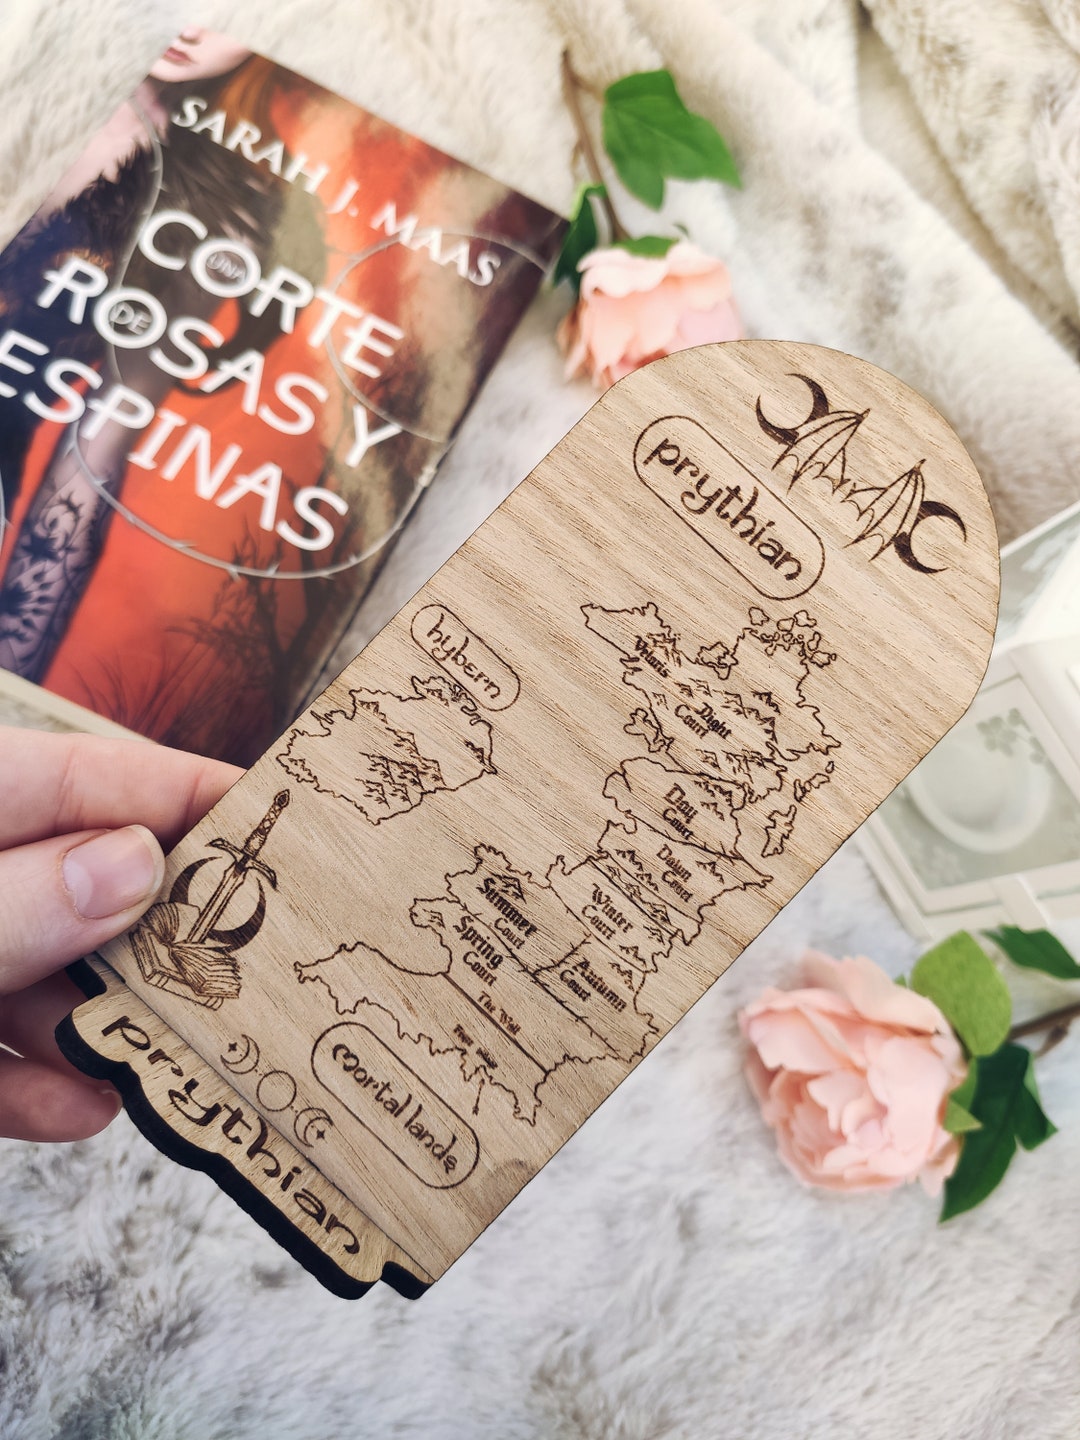 SARAH J. MAAS
CORTE
UNA
ROSAS Y
DE
ESPINAS
prythian
hybern
Velaris
Night
Court
Day
Court
Dawn
Court
Winter
Court
Summer
Court
Spring
Court
Autumn
Court
The Wall
mortal lands
prythian